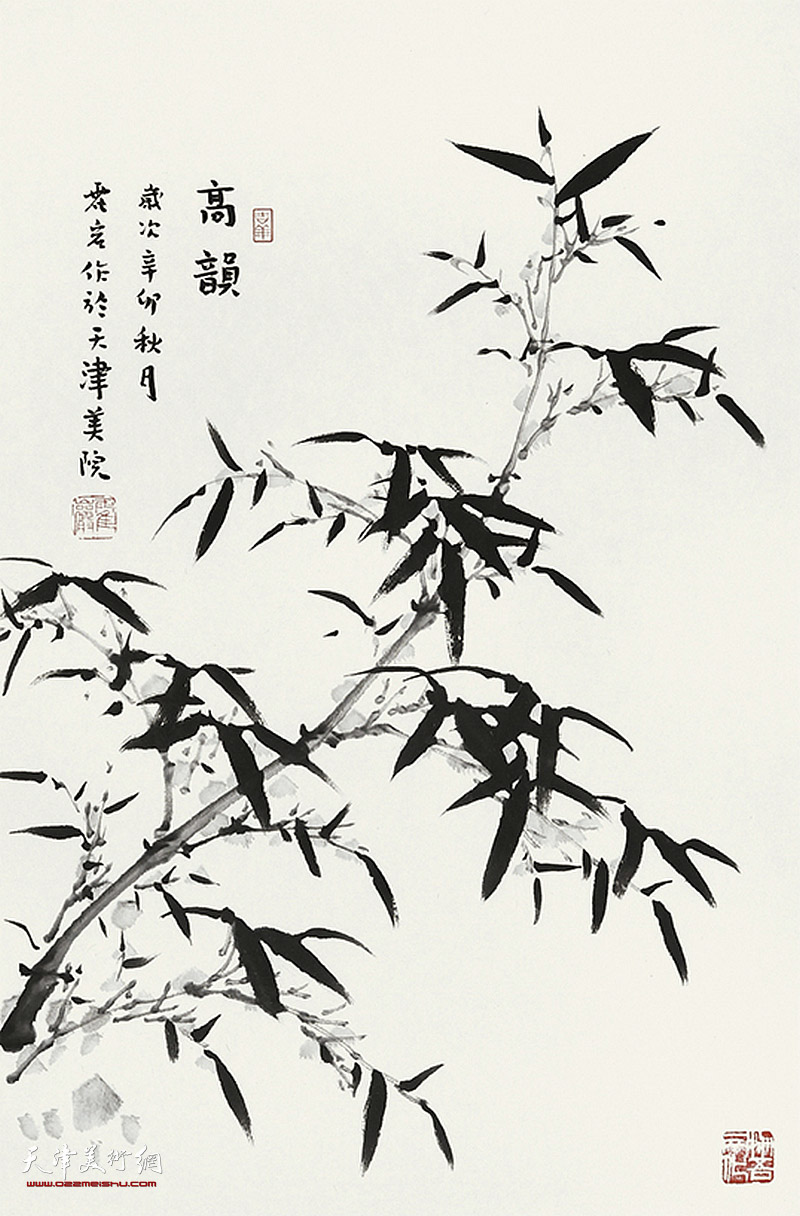 高韻
歲次辛卯秋月
霍岩作於天津美院
吉羊
天津美術網
www.022meishu.com